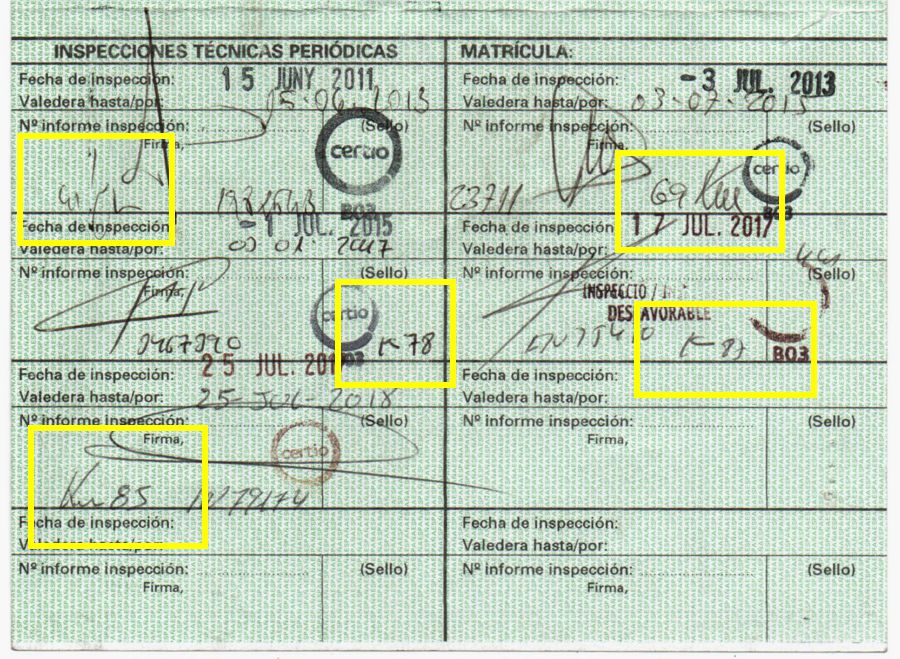 INSPECCIONES TÉCNICAS PERIÓDICAS
Fecha de inspección: 15 JUNY 2011
Valedera hasta/por: 15-06-2013
Nº informe inspección: (Sello)
Firma,
certio
B03
MATRÍCULA:
Fecha de inspección: -3 JUL. 2013
Valedera hasta/por: 03-07-2015
Nº informe inspección: (Sello)
Firma,
certio
23711 69 Km
B03
Fecha de inspección: -1 JUL. 2015
Valedera hasta/por: 2017
Nº informe inspección: (Sello)
Firma,
certio
K 78
B03
Fecha de inspección: 17 JUL. 2017
Valedera hasta/por:
Nº informe inspección: (Sello)
Firma,
INSPECCIO /
DESFAVORABLE
B03
Fecha de inspección: 25 JUL.
Valedera hasta/por: 25-JUL-2018
Nº informe inspección: (Sello)
Firma,
certio
Km 85
Fecha de inspección:
Valedera hasta/por:
Nº informe inspección: (Sello)
Firma,
Fecha de inspección:
Valedera hasta/por:
Nº informe inspección: (Sello)
Firma,
Fecha de inspección:
Valedera hasta/por:
Nº informe inspección: (Sello)
Firma,